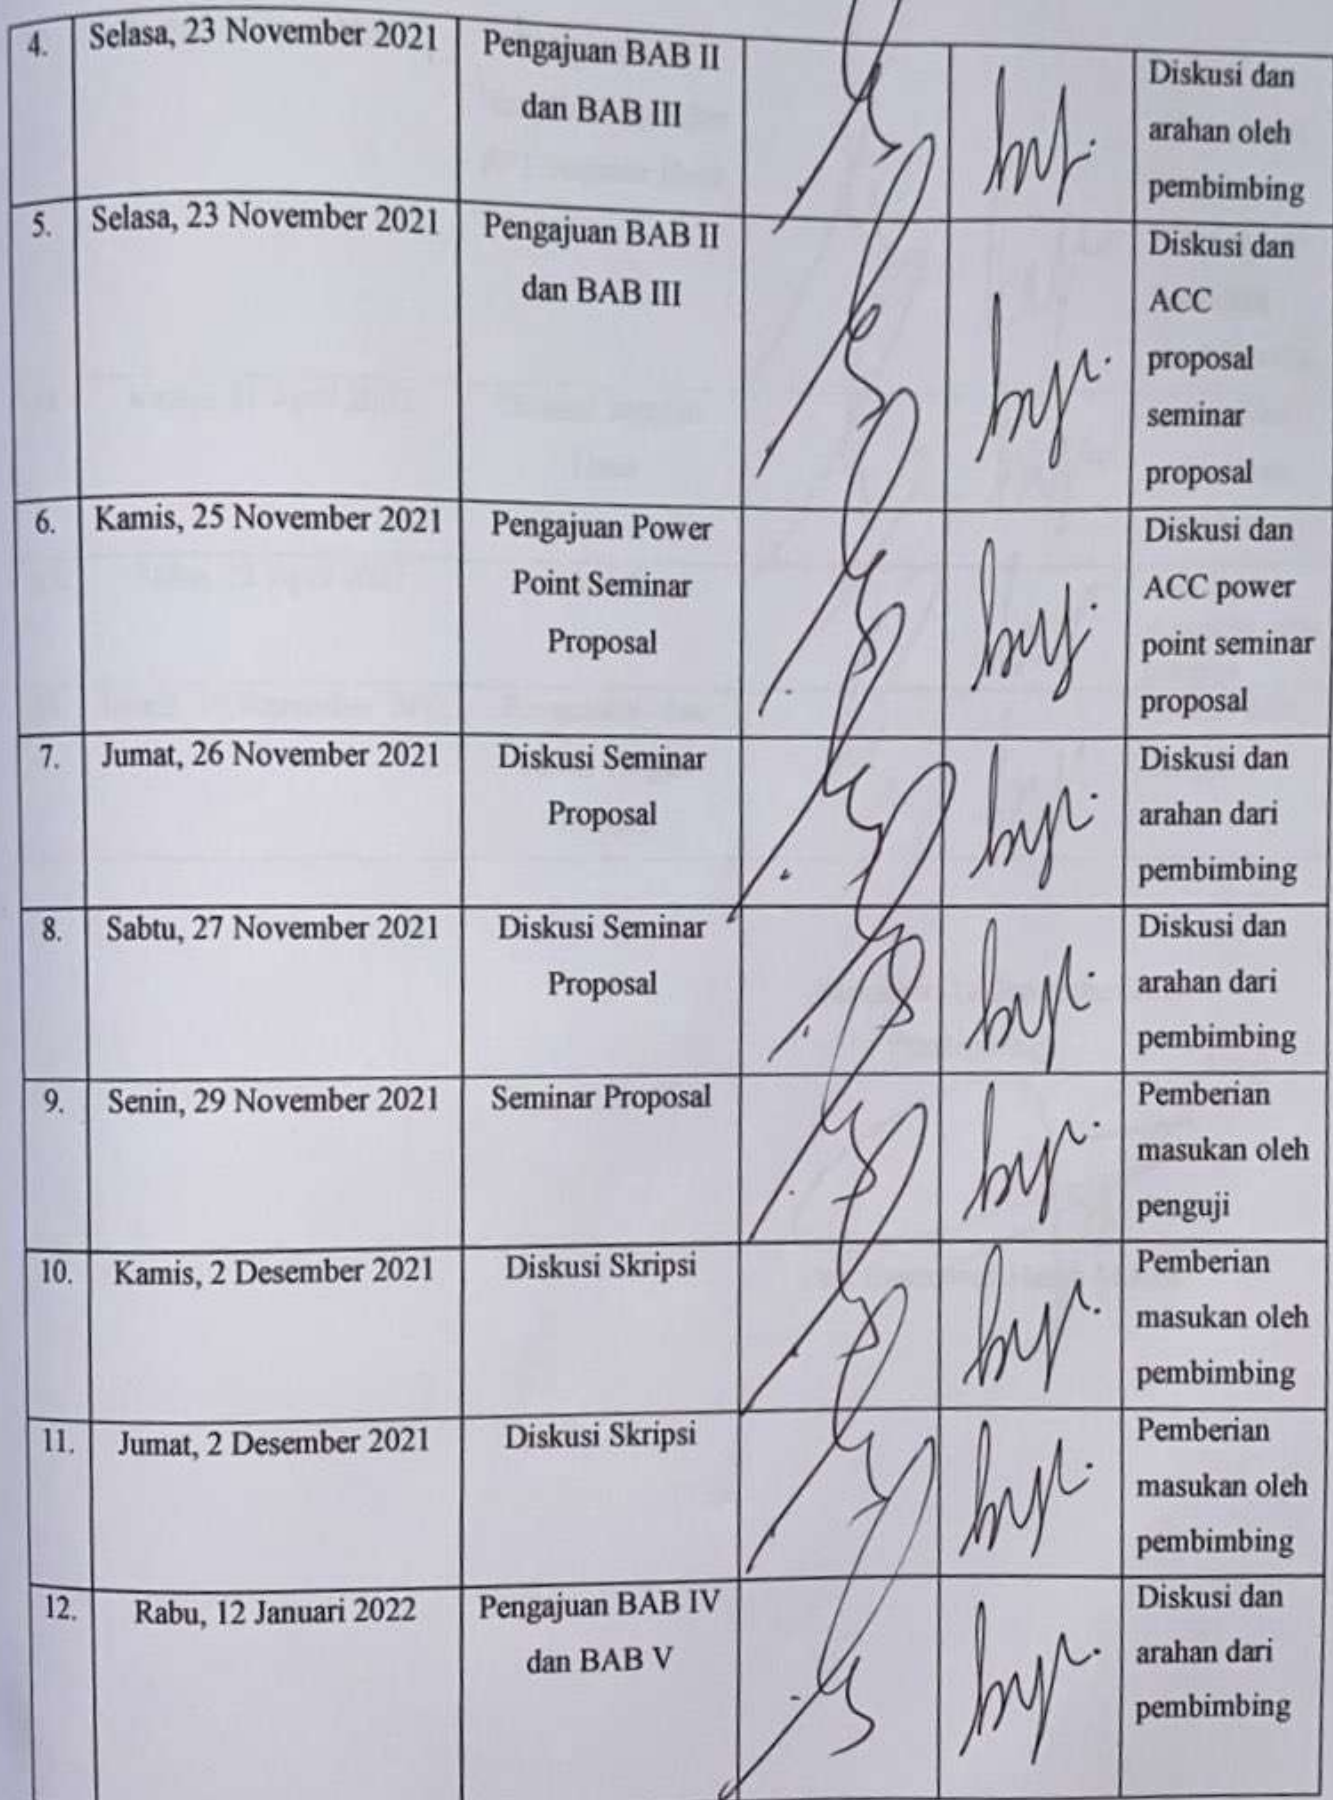 4. Selasa, 23 November 2021 Pengajuan BAB II Diskusi dan
dan BAB III arahan oleh
pembimbing
5. Selasa, 23 November 2021 Pengajuan BAB II Diskusi dan
dan BAB III ACC
proposal
seminar
proposal
6. Kamis, 25 November 2021 Pengajuan Power Diskusi dan
Point Seminar ACC power
Proposal point seminar
proposal
7. Jumat, 26 November 2021 Diskusi Seminar Diskusi dan
Proposal arahan dari
pembimbing
8. Sabtu, 27 November 2021 Diskusi Seminar Diskusi dan
Proposal arahan dari
pembimbing
9. Senin, 29 November 2021 Seminar Proposal Pemberian
masukan oleh
penguji
10. Kamis, 2 Desember 2021 Diskusi Skripsi Pemberian
masukan oleh
pembimbing
11. Jumat, 2 Desember 2021 Diskusi Skripsi Pemberian
masukan oleh
pembimbing
12. Rabu, 12 Januari 2022 Pengajuan BAB IV Diskusi dan
dan BAB V arahan dari
pembimbing